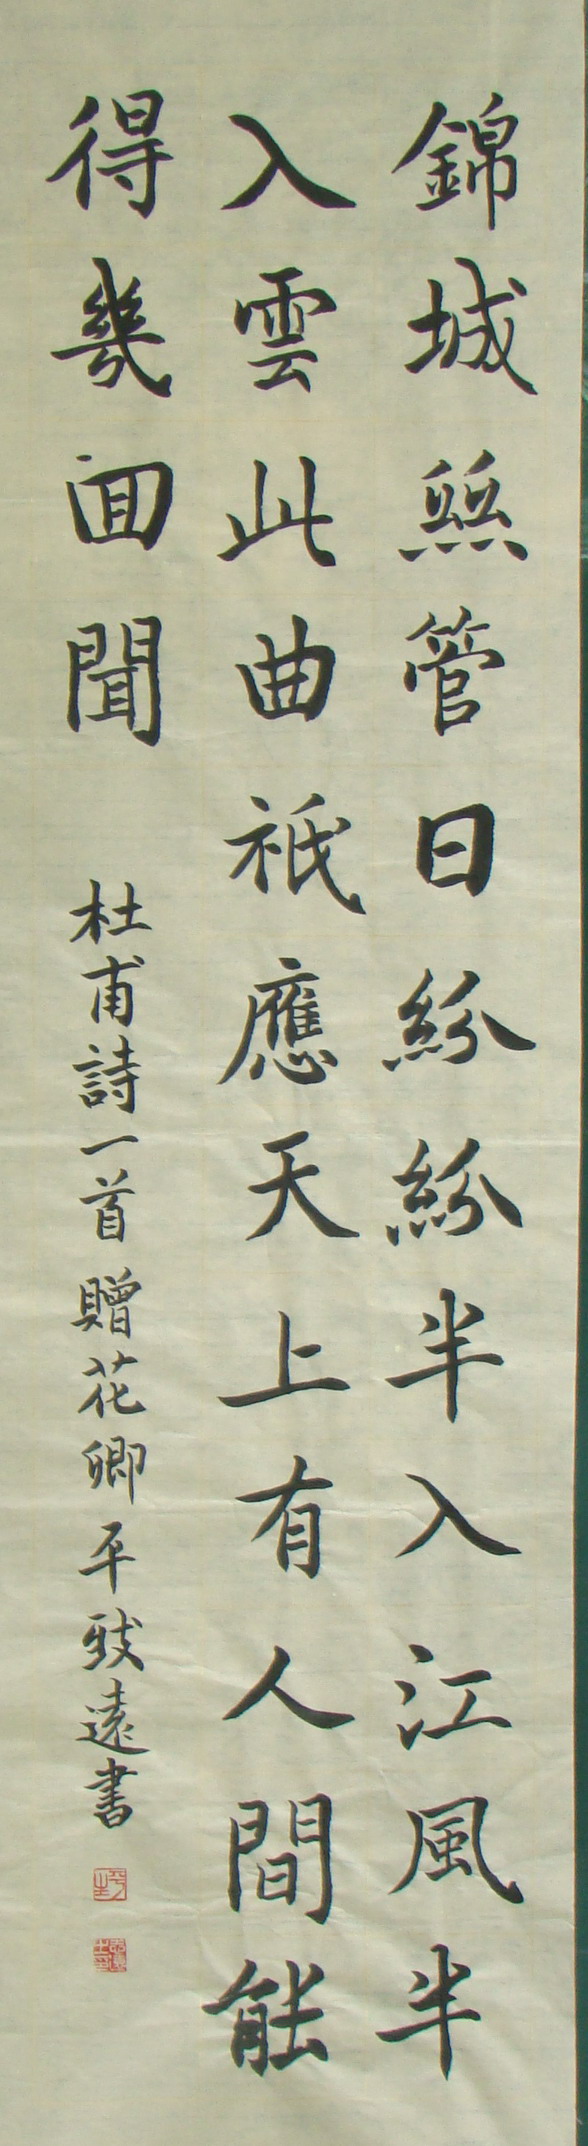 錦城絲管日紛紛半入江風半
入雲此曲祇應天上有人間能
得幾回聞
杜甫詩一首 贈花卿 平致遠書